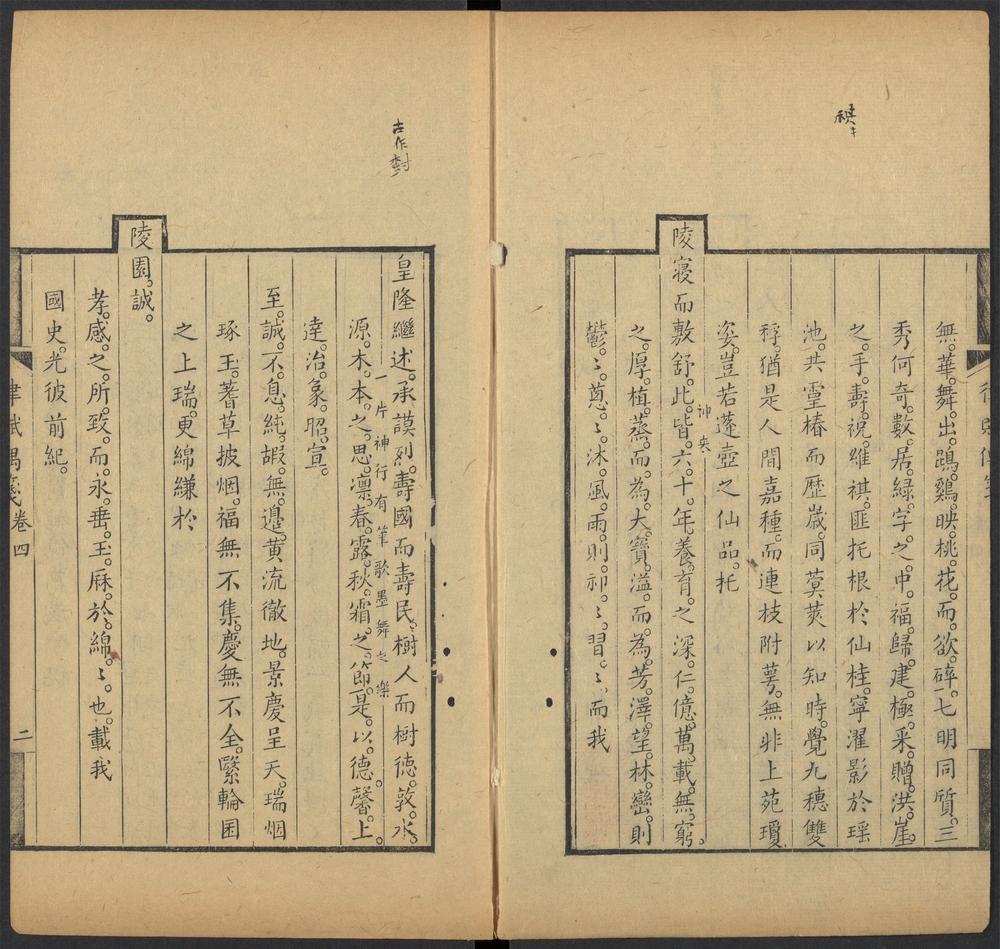 無華舞出鵾鷄映桃花而欲碎七明同質三
秀何奇數居綠字之中福歸建極采贈洪崖
之手壽祝維祺匪托根於仙桂寧濯影於瑶
池共靈椿而歷歲同蓂莢以知時覺九穗雙
稃猶是人間嘉種而連枝附萼無非上苑瓊
姿豈若蓬壺之仙品托
陵寢而敷舒此皆六十年養育之深仁億萬載無窮
之厚植蒸而為大寶溢而為芳澤望林巒則
鬱〻蔥〻沐風雨則祁〻習〻而我
皇隆繼述承謨烈壽國而壽民樹人而樹德敦水
一片神行有筆歌墨舞之樂
源木本之思凛春露秋霜之節是以德馨上
達治象昭宣
至誠不息純嘏無邊黃流徹地景慶呈天瑞烟
琢玉蓍草披烟福無不集慶無不全繄輪囷
之上瑞更綿縑於
陵園誠
孝感之所致而永垂玉厤於綿〻也載我
國史光彼前紀
古作對
卷四
二